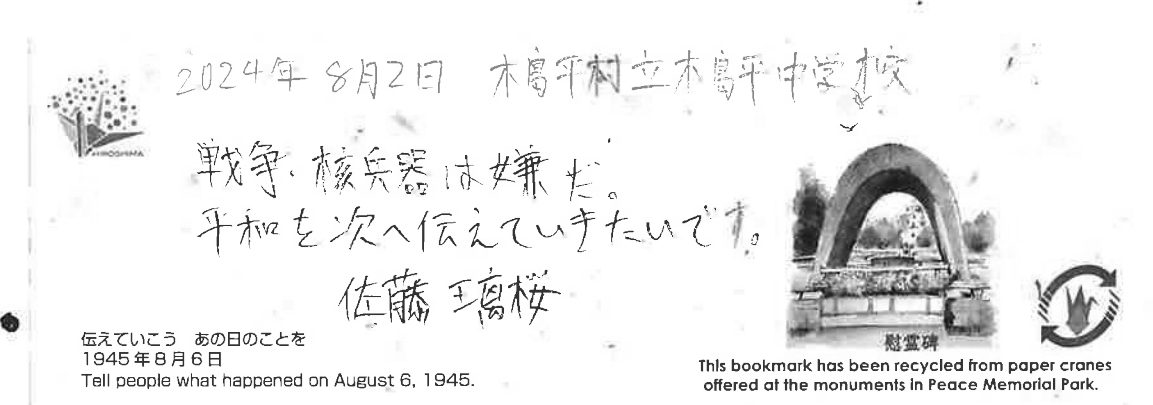 2024年 8月2日 木島平村立木島平中学校
HIROSHIMA
戦争、核兵器は嫌だ。
平和を次へ伝えていきたいです。
佐藤 璃桜
慰霊碑
伝えていこう あの日のことを
1945年8月6日
Tell people what happened on August 6, 1945.
This bookmark has been recycled from paper cranes
offered at the monuments in Peace Memorial Park.